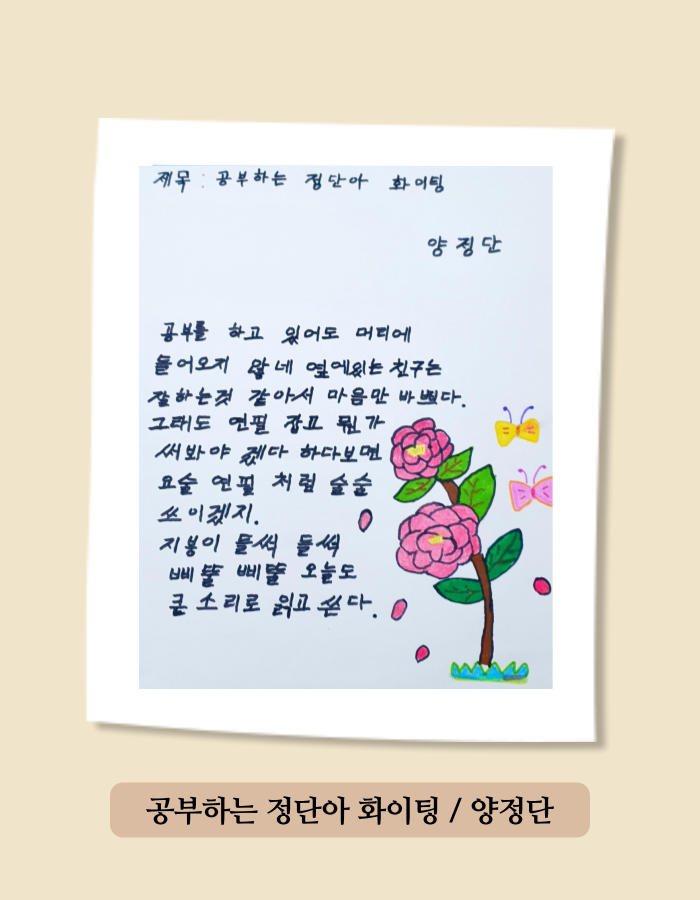 제목 : 공부하는 정단아 화이팅
양정단
공부를 하고 있어도 머리에
들어오지 않네 옆에있는 친구는
잘하는것 같아서 마음만 바쁘다.
그래도 연필 잡고 뭔가
써봐야 겠다 하다보면
요술 연필 처럼 술술
쓰이겠지.
지붕이 들썩 들썩
삐뚤 삐뚤 오늘도
큰 소리로 읽고 쓴다.
공부하는 정단아 화이팅 / 양정단